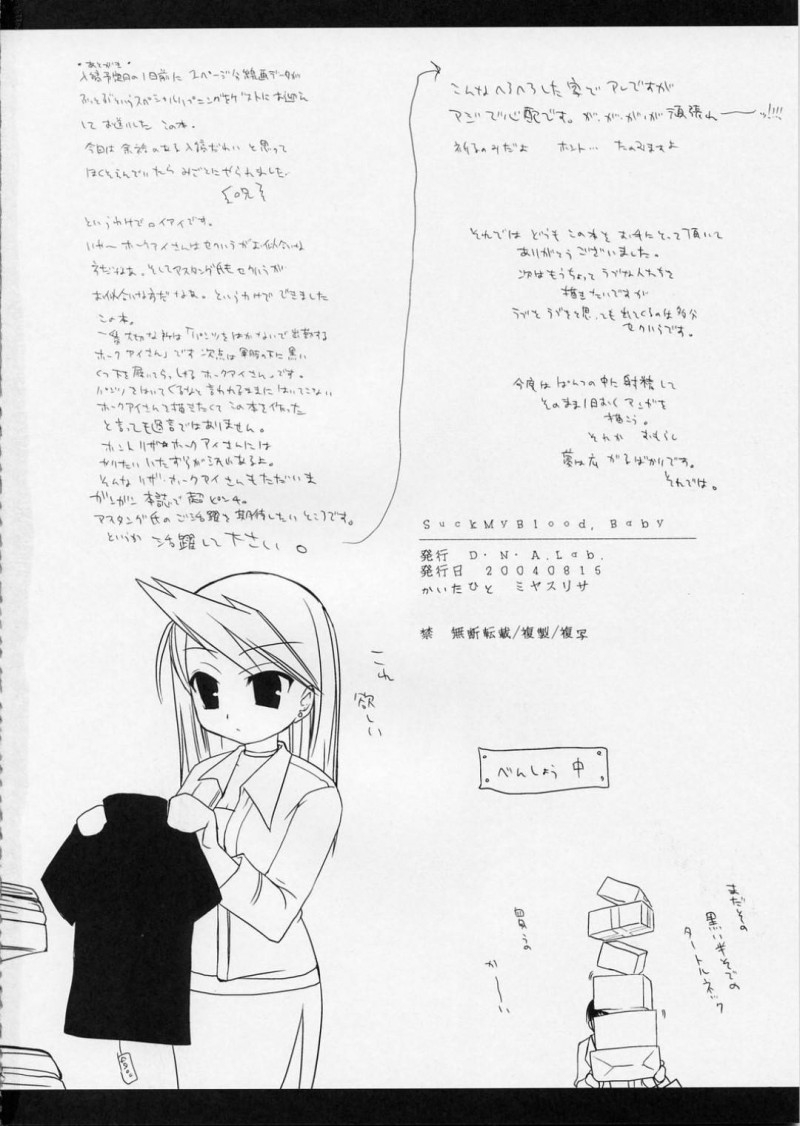 あとがき
入稿予定日の1日前に2ページ分線画データが
して お送りした この本.
今回は 余裕のある 入稿だわい と思って
ほくそえんでいたら みごとにやられました.
というわけで ロイアイです。
いや〜 ホークアイさんは セクハラが お似合いな
方だなぁ. そして マスタング氏も セクハラが
お似合いな方だ なぁ. というわけで できました
この本。
一番 大切な所は「パンツをはかないで出勤する
ホークアイさん」です 次点は 軍服の下に黒い
くつ下を 履いてらっしゃる ホークアイさん。です。
ホークアイさんを描きたくて この本を作った
と言っても過言ではありません。
ホント リザ・ホークアイさんには
そんな リザ・ホークアイ さんも ただいま
ガンガン 本誌で 超 ピンチ。
マスタング氏の ご活躍を 期待したい ところです。
というか 活躍して下さい。
こんな へろへろした 家で アレですが
マジで心配です。が、が、が、が 頑張れ――ッ!!!!
祈るのみだよ ホント… たのみますよ
それでは どうも この本を お手にとって 頂いて
ありがとう ございました。
次はもうちょって ラブな人たちを
描きたいですが
ラブを ラブをと思っても 出てくるのは多分
セクハラです。
今度は ぱんつの中に 射精して
そのまま1日おく マンガを
描こう。
それか おもらし
夢は広がるばかりです。
それでは。
SuckMyBlood, Baby
発行 D・N・A.Lab.
発行日 20040815
かいたひと ミヤスリサ
禁 無断転載/複製/複写
これ
欲しい
べんしょう 中
まだその
黒い半そでの
タートルネック
買うの
かーい